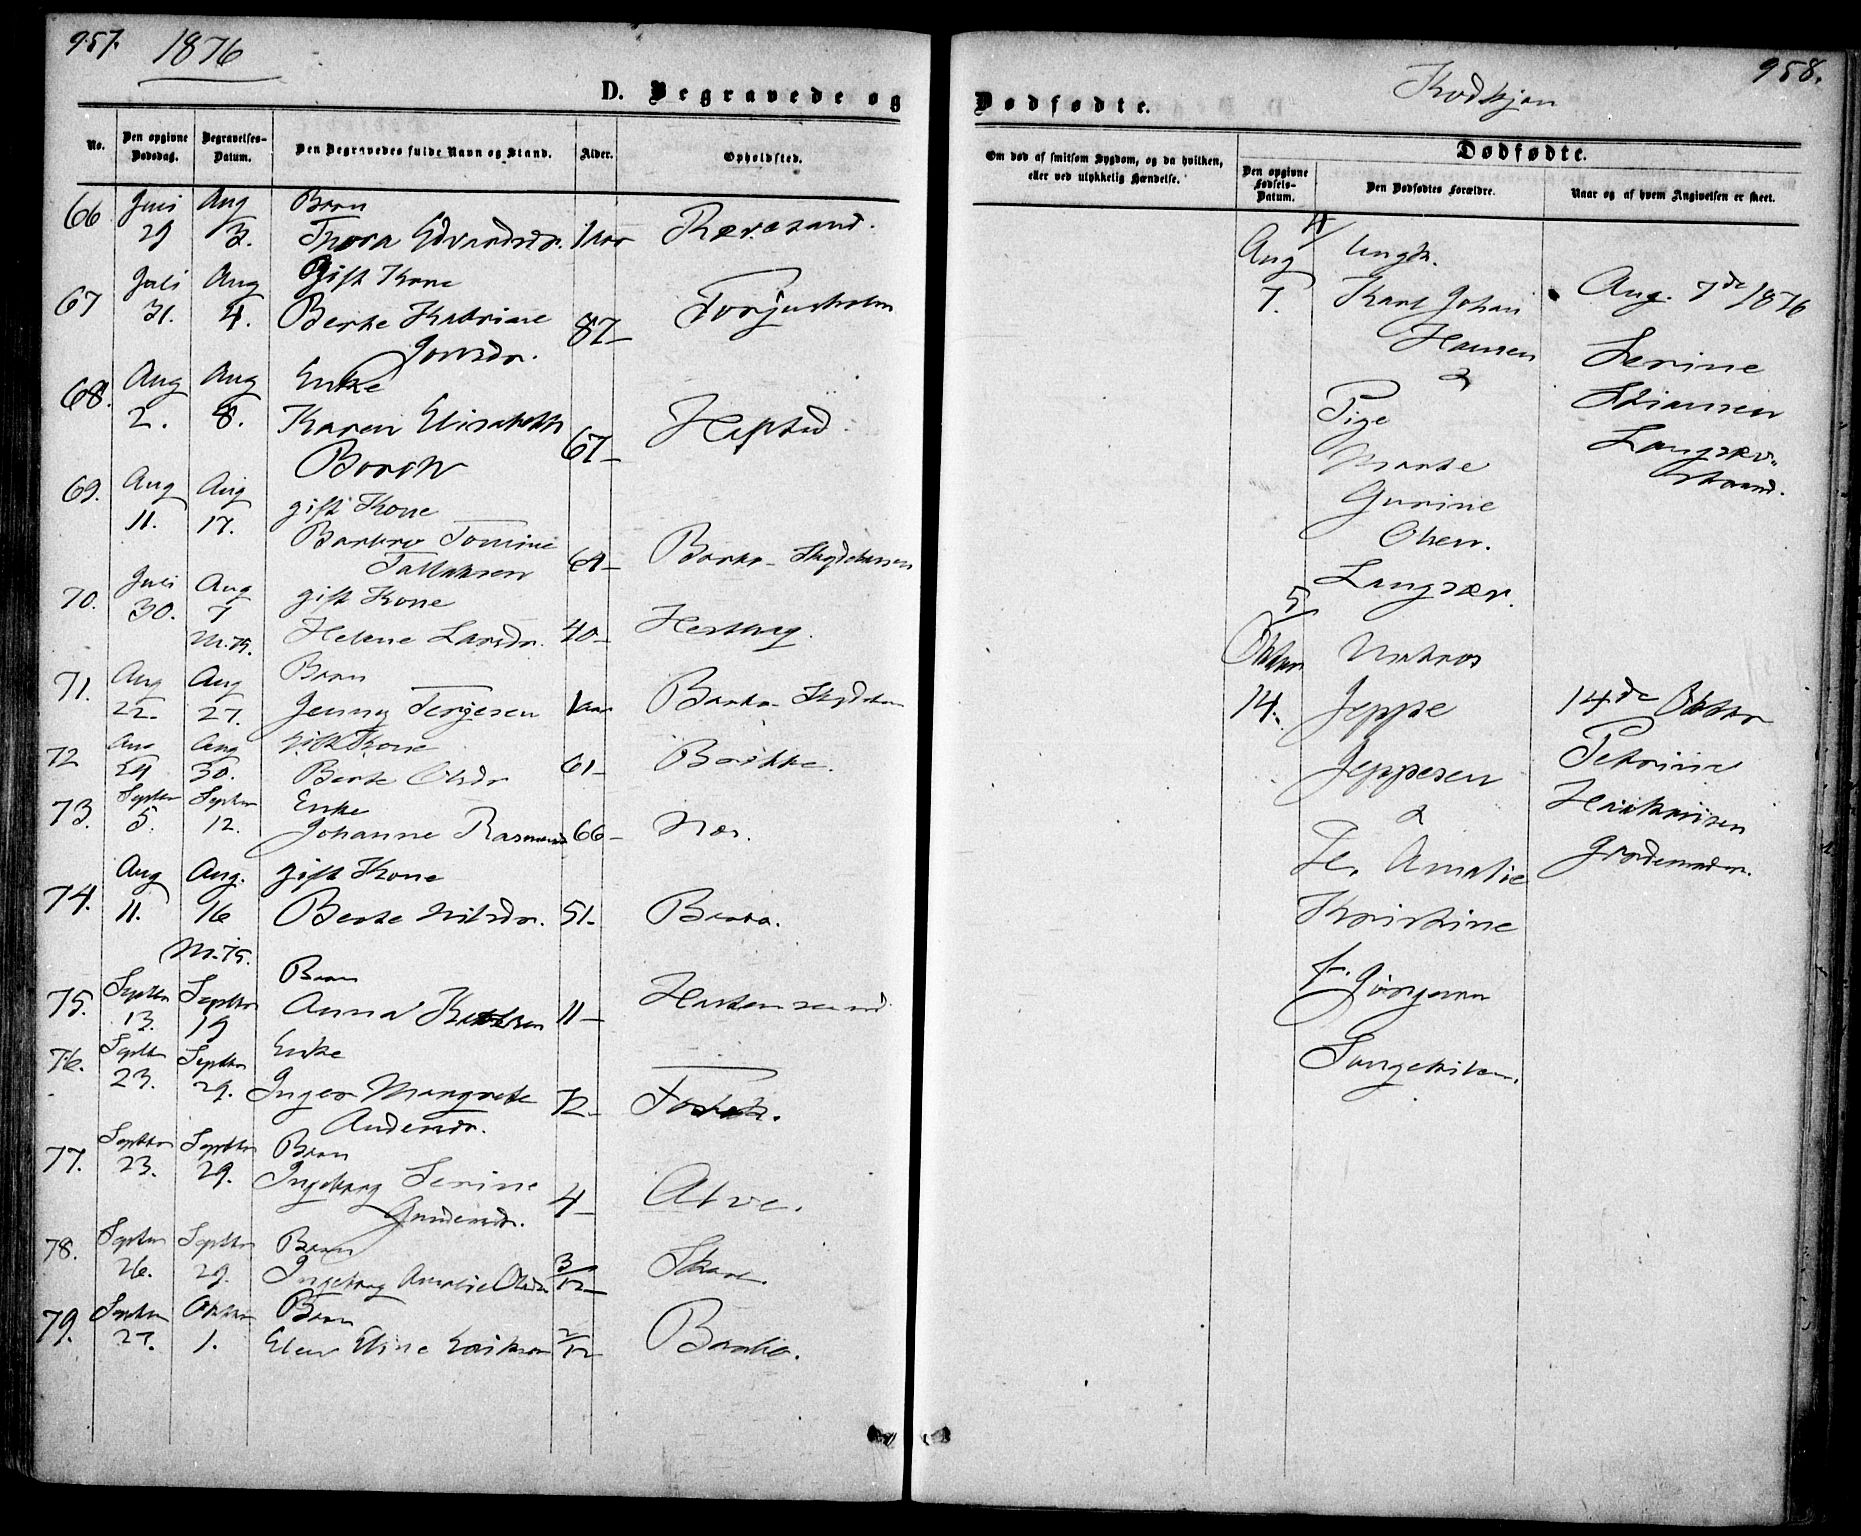 957.
1876
D. Begravede og
No.
Den opgivne Dødsdag.
Begravelses-Datum.
Den Begravedes fulde Navn og Stand.
Alder.
Opholdsted.
66 Juli 29 Aug 3. Barn
Thora Edvardsdr. 1 aar Rævesand.
67 Juli 31. Aug 4. Gift Kone
Berte Katrine 87-
Jonsdr.
68. Aug 2. Aug 8. Enke
Karen Elisabeth 67-
Borch
69. Aug 11. Aug 17. gift Kone
Barbro Tomine
Tallaksen 64- Barbo
70. Juli 30. Aug 7 gift Kone
Nr. 75. Helene Larsdr. 40-
71. Aug 22. Aug 27. Barn
Jenny Terjesen 1 aar Barbo
72 Aug 24 Aug 30. gift Kone
Berte Olsdr 61-
73. Septbr 5. Septbr 12. Enke
Johanne 66-
74. Aug 11. Aug. 16 gift Kone
Berte Nilsdr. 51- Barbo.
Nr. 75.
75. Septbr 13. Septbr 19 Barn
Anna 11-
76. Septbr 23. Septbr 29. Enke
Inger Margrete 72-
Andersdr.
77. Septbr 23. Septbr 29. Barn
Ingeborg Serine 4- Alve.
Gundersdr.
78. Septbr 26. Septbr 29. Barn
Ingeborg Amalie Olsdr 3/12-
79. Septbr 27. Oktbr 1. Barn
Elen Eline 2/12 Barbo.
958.
Dødfødte.
Om død af smitsom Sygdom, og da hvilken,
eller ved ulykkelig Hændelse.
Dødfødte.
Den opgivne Fødsels-Datum.
Den Dødfødtes Forældre.
Naar og af hvem Angivelsen er skeet.
Aug Ungk.
7. Karl Johan Aug. 7de 1876
Hansen Serine
& Stiansen
Pige
Marte
Gurine
Olsen.
Langsæv.
Oktbr. Matros
14. Jeppe 14de Oktbr
Jeppesen Petrine
& Henriksen
H. Amalie
Kristine
f. Jørgensen